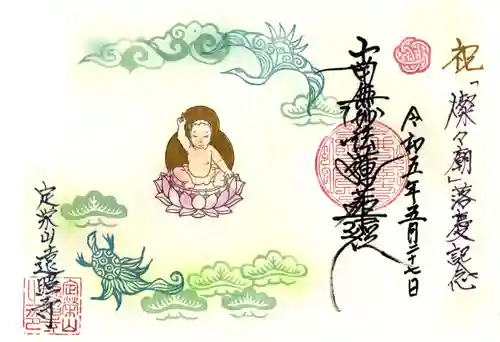 祝「燦々廟」落慶記念
令和五年五月二十七日
南無妙法蓮華経
定栄山遠照寺